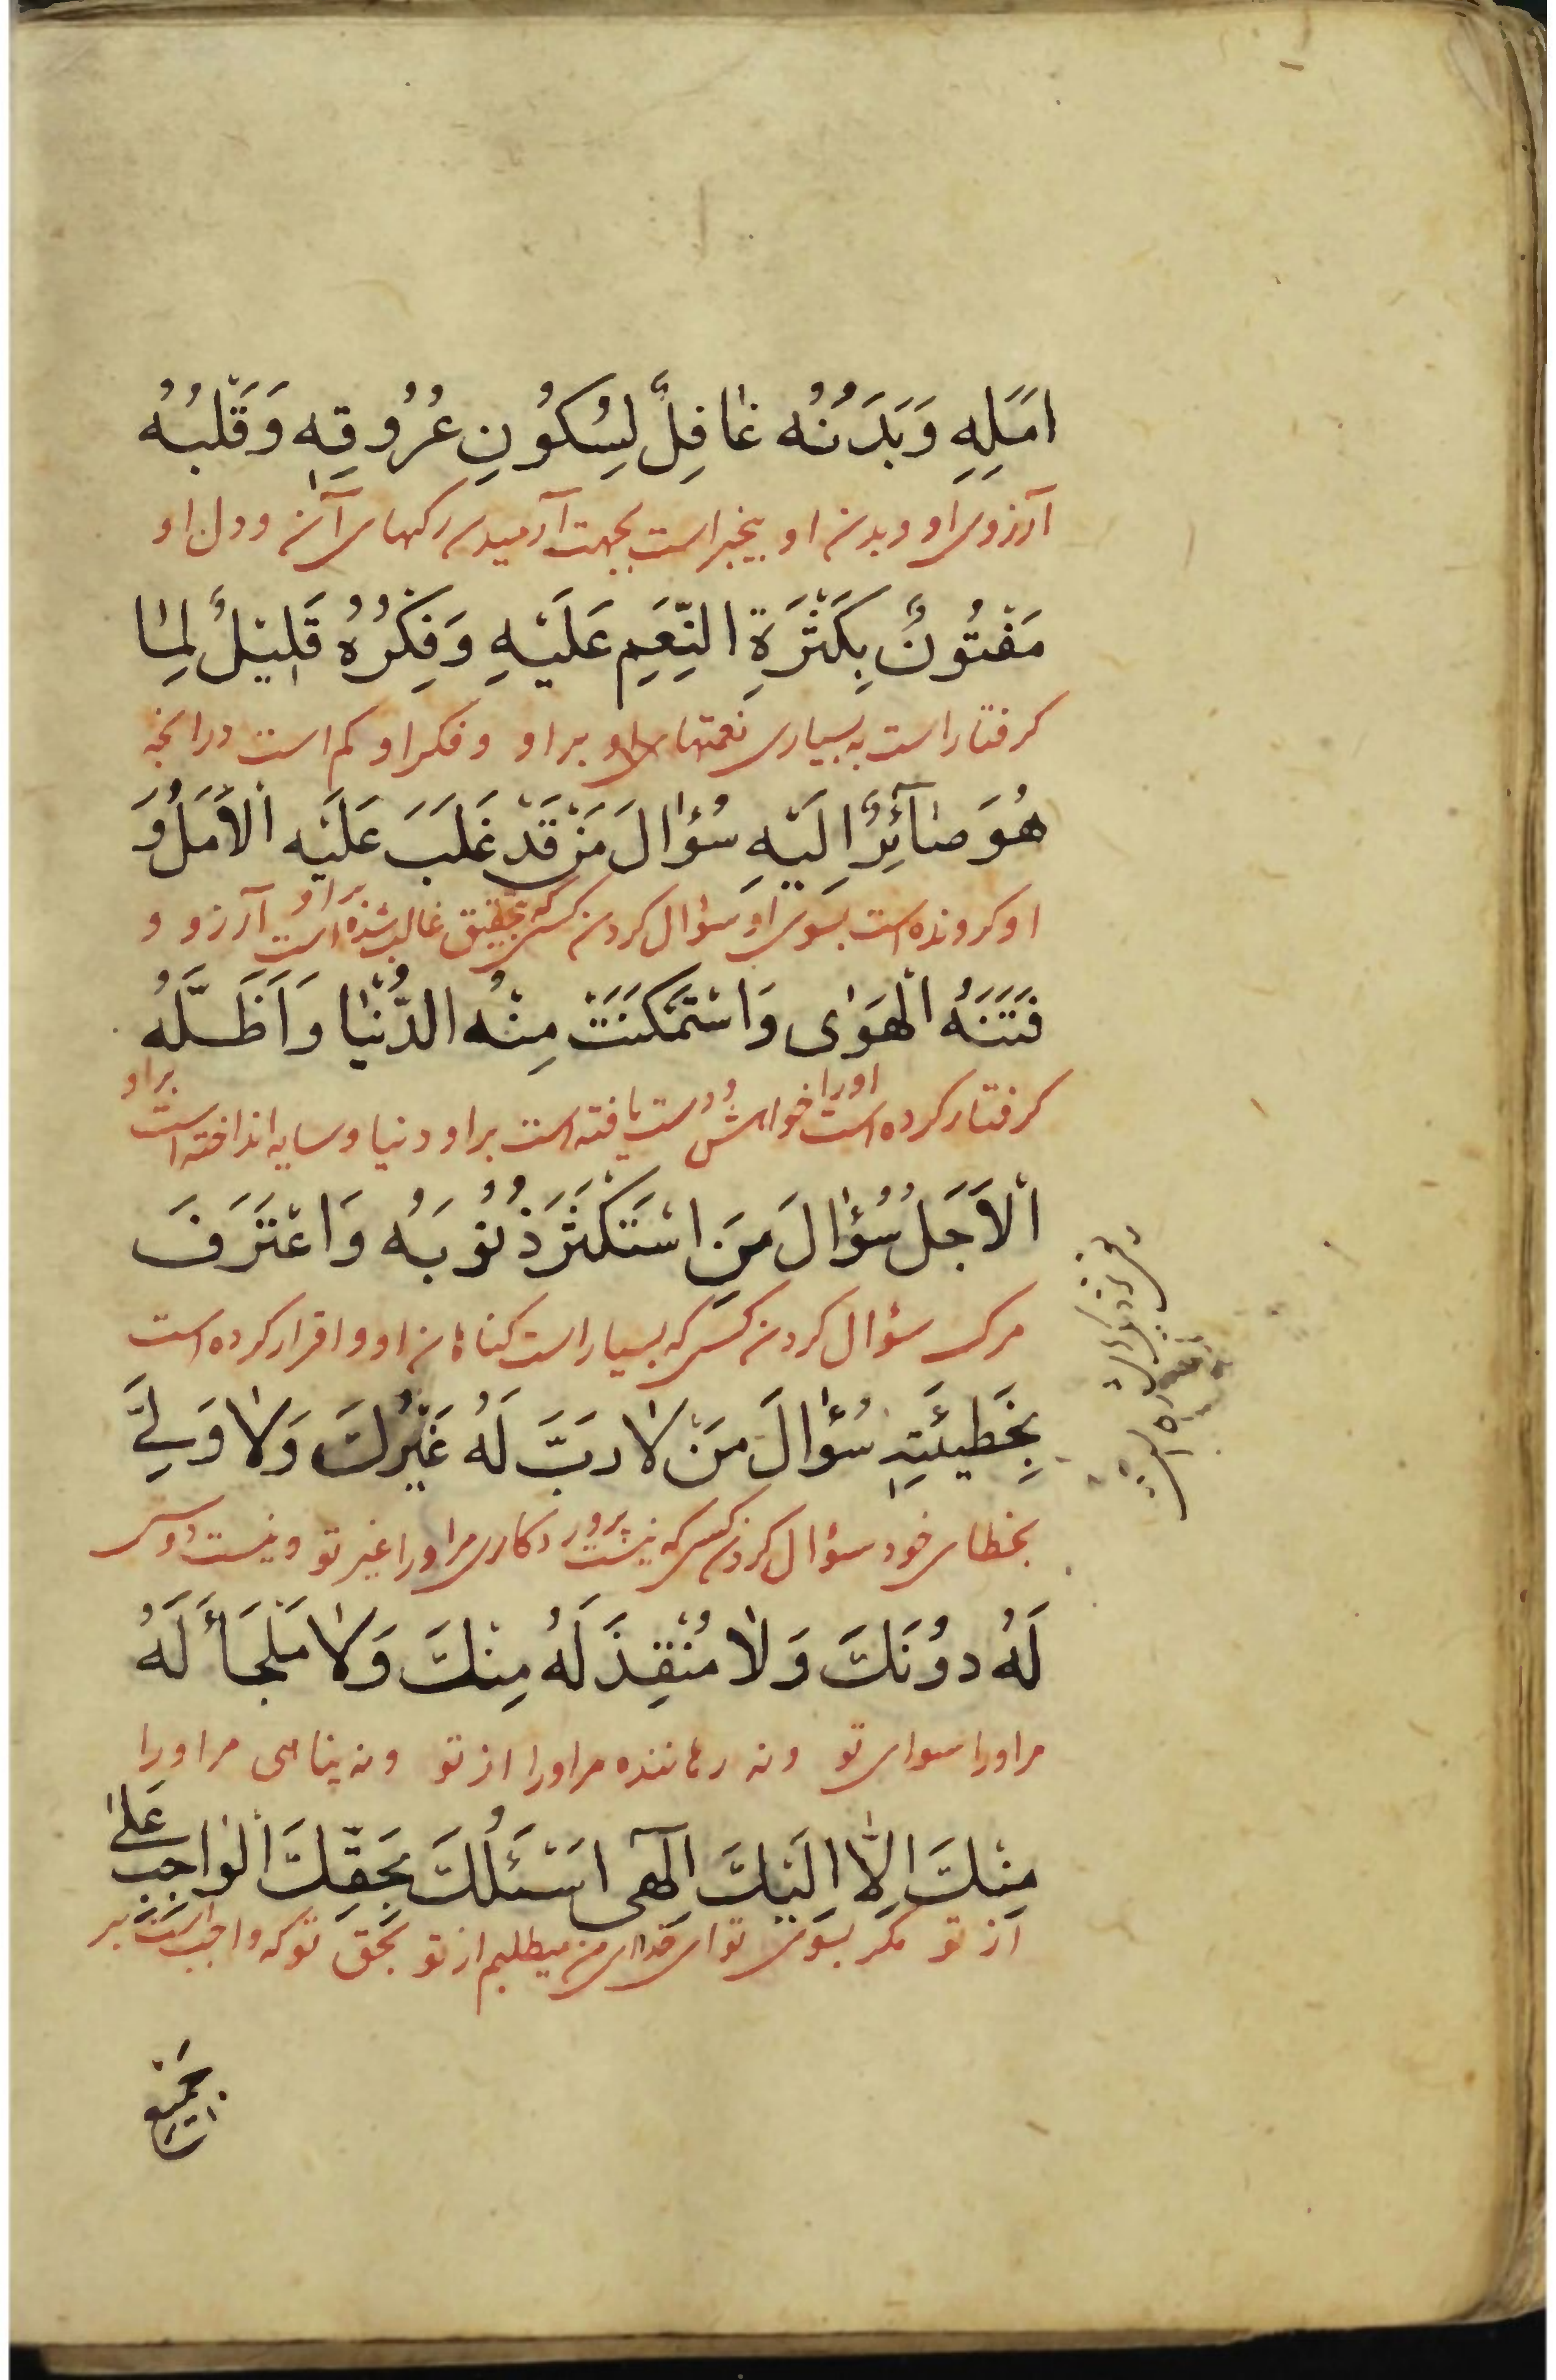 اَمَلِهِ وَبَدَنُهُ غٰافِلٌ لِسُكُونِ عُرُوقِهِ وَقَلْبُهُ
آرزوی او و بدن او بیخبر است بجهت آرمیدن رکهای آن و دل او
مَفْتُونٌ بِكَثْرَةِ النِّعَمِ عَلَيْهِ وَفِكْرُهُ قَلِيْلٌ لِمٰا
کرفتار است به بسیاری نعمتهای بر او و فکر او کم است در انچه
هُوَ صٰآئِرٌ اِلَيْهِ سُؤٰالَ مَنْ قَدْ غَلَبَ عَلَيْهِ الْاَمَلُ وَ
او کرونده است بسوی او سؤال کردن کسی که بتحقیق غالب شده است بر او آرزو و
فَتَنَهُ الْهَوٰى وَاسْتَمْكَنَتْ مِنْهُ الدُّنْيٰا وَاَظَلَّهُ
کرفتار کرده است او را خواهش و دست یافته است بر او دنیا و سایه انداخته است بر او
الْاَجَلُ سُؤٰالَ مَنِ اسْتَكْثَرَ ذُنُوبَهُ وَاعْتَرَفَ
مرک سؤال کردن کسی که بسیار است کناهان او و اقرار کرده است
بِخَطِيئَتِهِ سُؤٰالَ مَنْ لٰا رَبَّ لَهُ غَيْرُكَ وَلٰا وَلِيَّ
بخطای خود سؤال کردن کسی که نیست پروردکاری مر او را غیر تو و نیست دوستی
لَهُ دُوْنَكَ وَلٰا مُنْقِذَ لَهُ مِنْكَ وَلٰا مَلْجَأَ لَهُ
مر او را سوای تو و نه رهاننده مر او را از تو و نه پناهی مر او را
مِنْكَ اِلّٰا اِلَيْكَ اِلٓهى اَسْئَلُكَ بِحَقِّكَ الْوٰاجِبِ عَلىٰ
از تو مکر بسوی تو ای خدای من میطلبم از تو بحق تو که واجب است بر
جَمْيِعِ